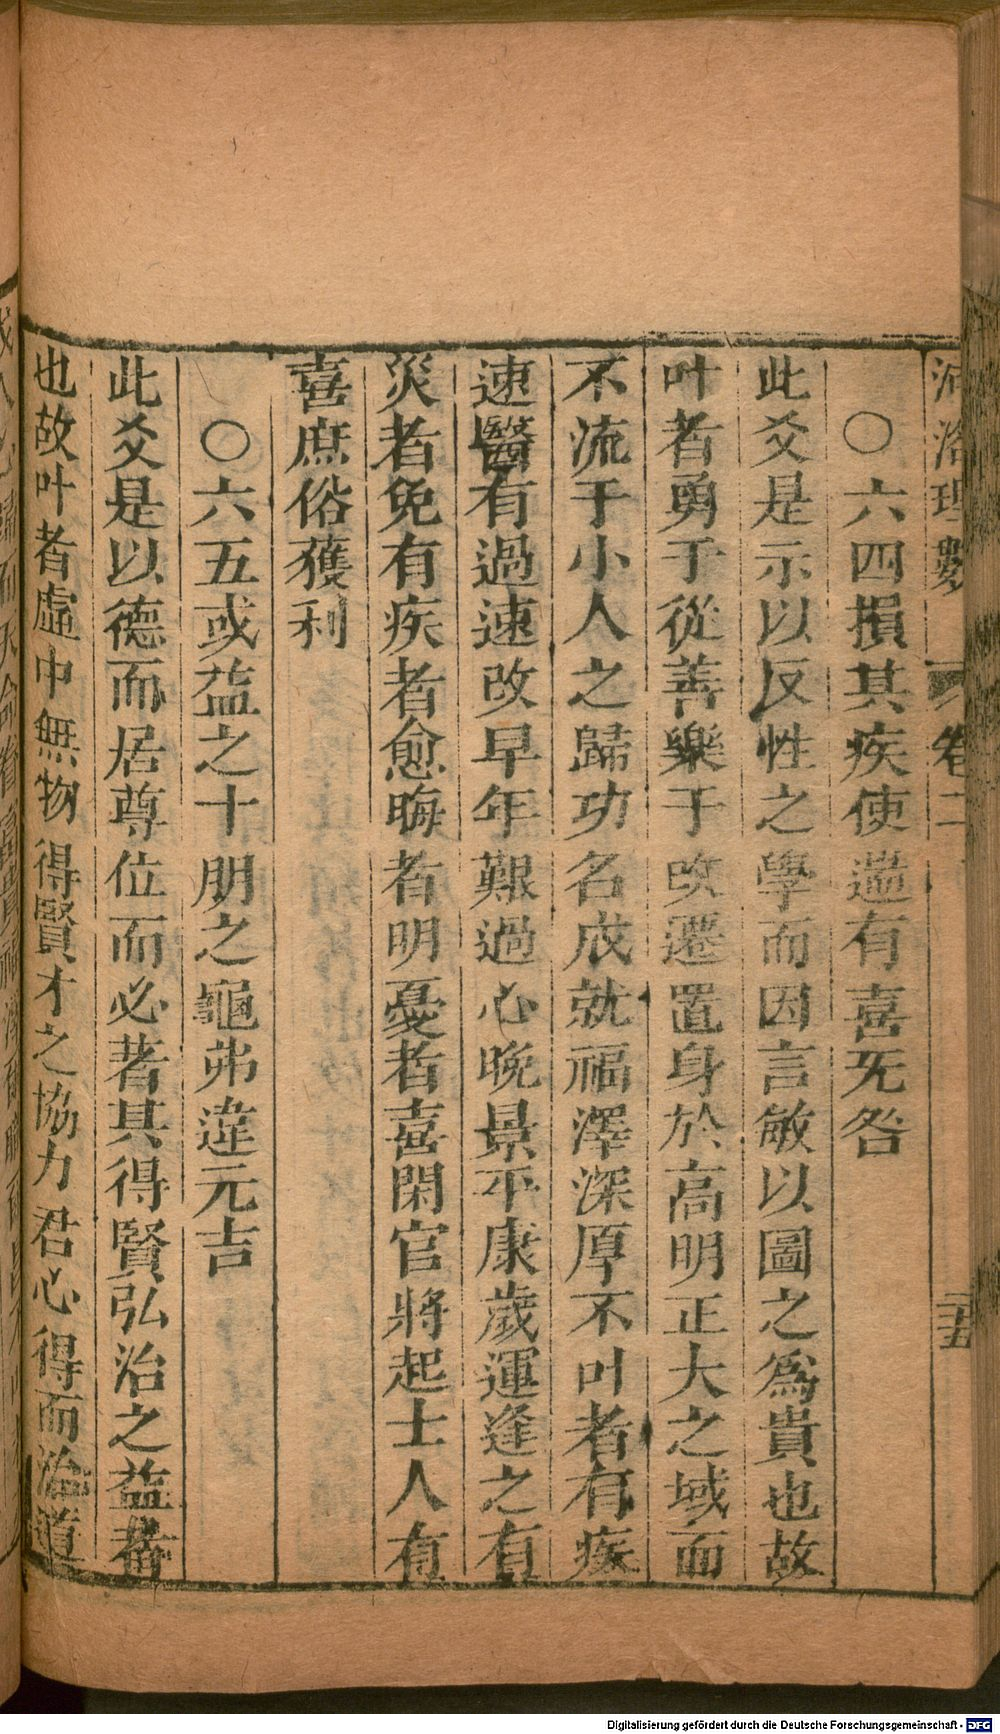 河洛理數 卷二 二十五
〇六四損其疾使遄有喜旡咎
此爻是示以反性之學而因言敏以圖之爲貴也故
叶者勇于從善樂于改遷置身於高明正大之域而
不流于小人之歸功名成就福澤深厚不叶者有疾
速醫有過速改早年艱過心晚景平康歲運逢之有
災者免有疾者愈晦者明憂者喜閑官將起士人有
喜庶俗獲利
〇六五或益之十朋之龜弗違元吉
此爻是以德而居尊位而必著其得賢弘治之益者
也故叶者虛中無物得賢才之協力君心得而治道
Digitalisierung gefördert durch die Deutsche Forschungsgemeinschaft - DFG